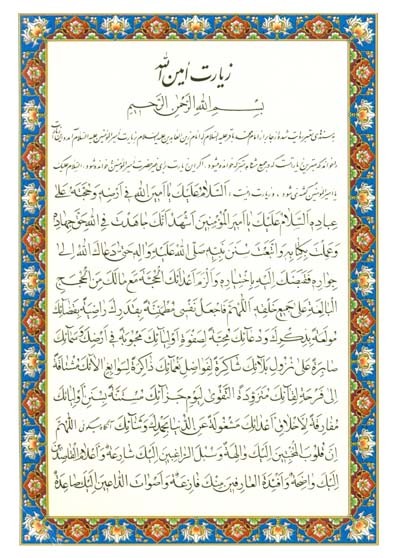 زیارت امین الله
بسم الله الرحمن الرحیم
السلام علیک یا امین الله فی ارضه و حجته علی
عباده السلام علیک یا امیر المؤمنین اشهد انک جاهدت فی الله حق جهاده
و عملت بکتابه و اتبعت سنن نبیه صلی الله علیه و اله حتی دعاک الله الی
جواره فقبضک الیه باختیاره و الزم اعدائک الحجة مع مالک من الحجج
البالغة علی جمیع خلقه اللهم فاجعل نفسی مطمئنة بقدرک راضیة بقضائک
مولعة بذکرک و دعائک محبة لصفوة اولیائک محبوبة فی ارضک و سمائک
صابرة علی نزول بلائک شاکرة لفواضل نعمائک ذاکرة لسوابغ الائک مشتاقة
الی فرحة لقائک متزودة التقوی لیوم جزائک مستنة بسنن اولیائک
مفارقة لاخلاق اعدائک مشغولة عن الدنیا بحمدک و ثنائک اللهم
ان قلوب المخبتین الیک والهة و سبل الراغبین الیک شارعة و اعلام القاصدین
الیک واضحة و افئدة العارفین منک فازعة و اصوات الداعین الیک صاعدة